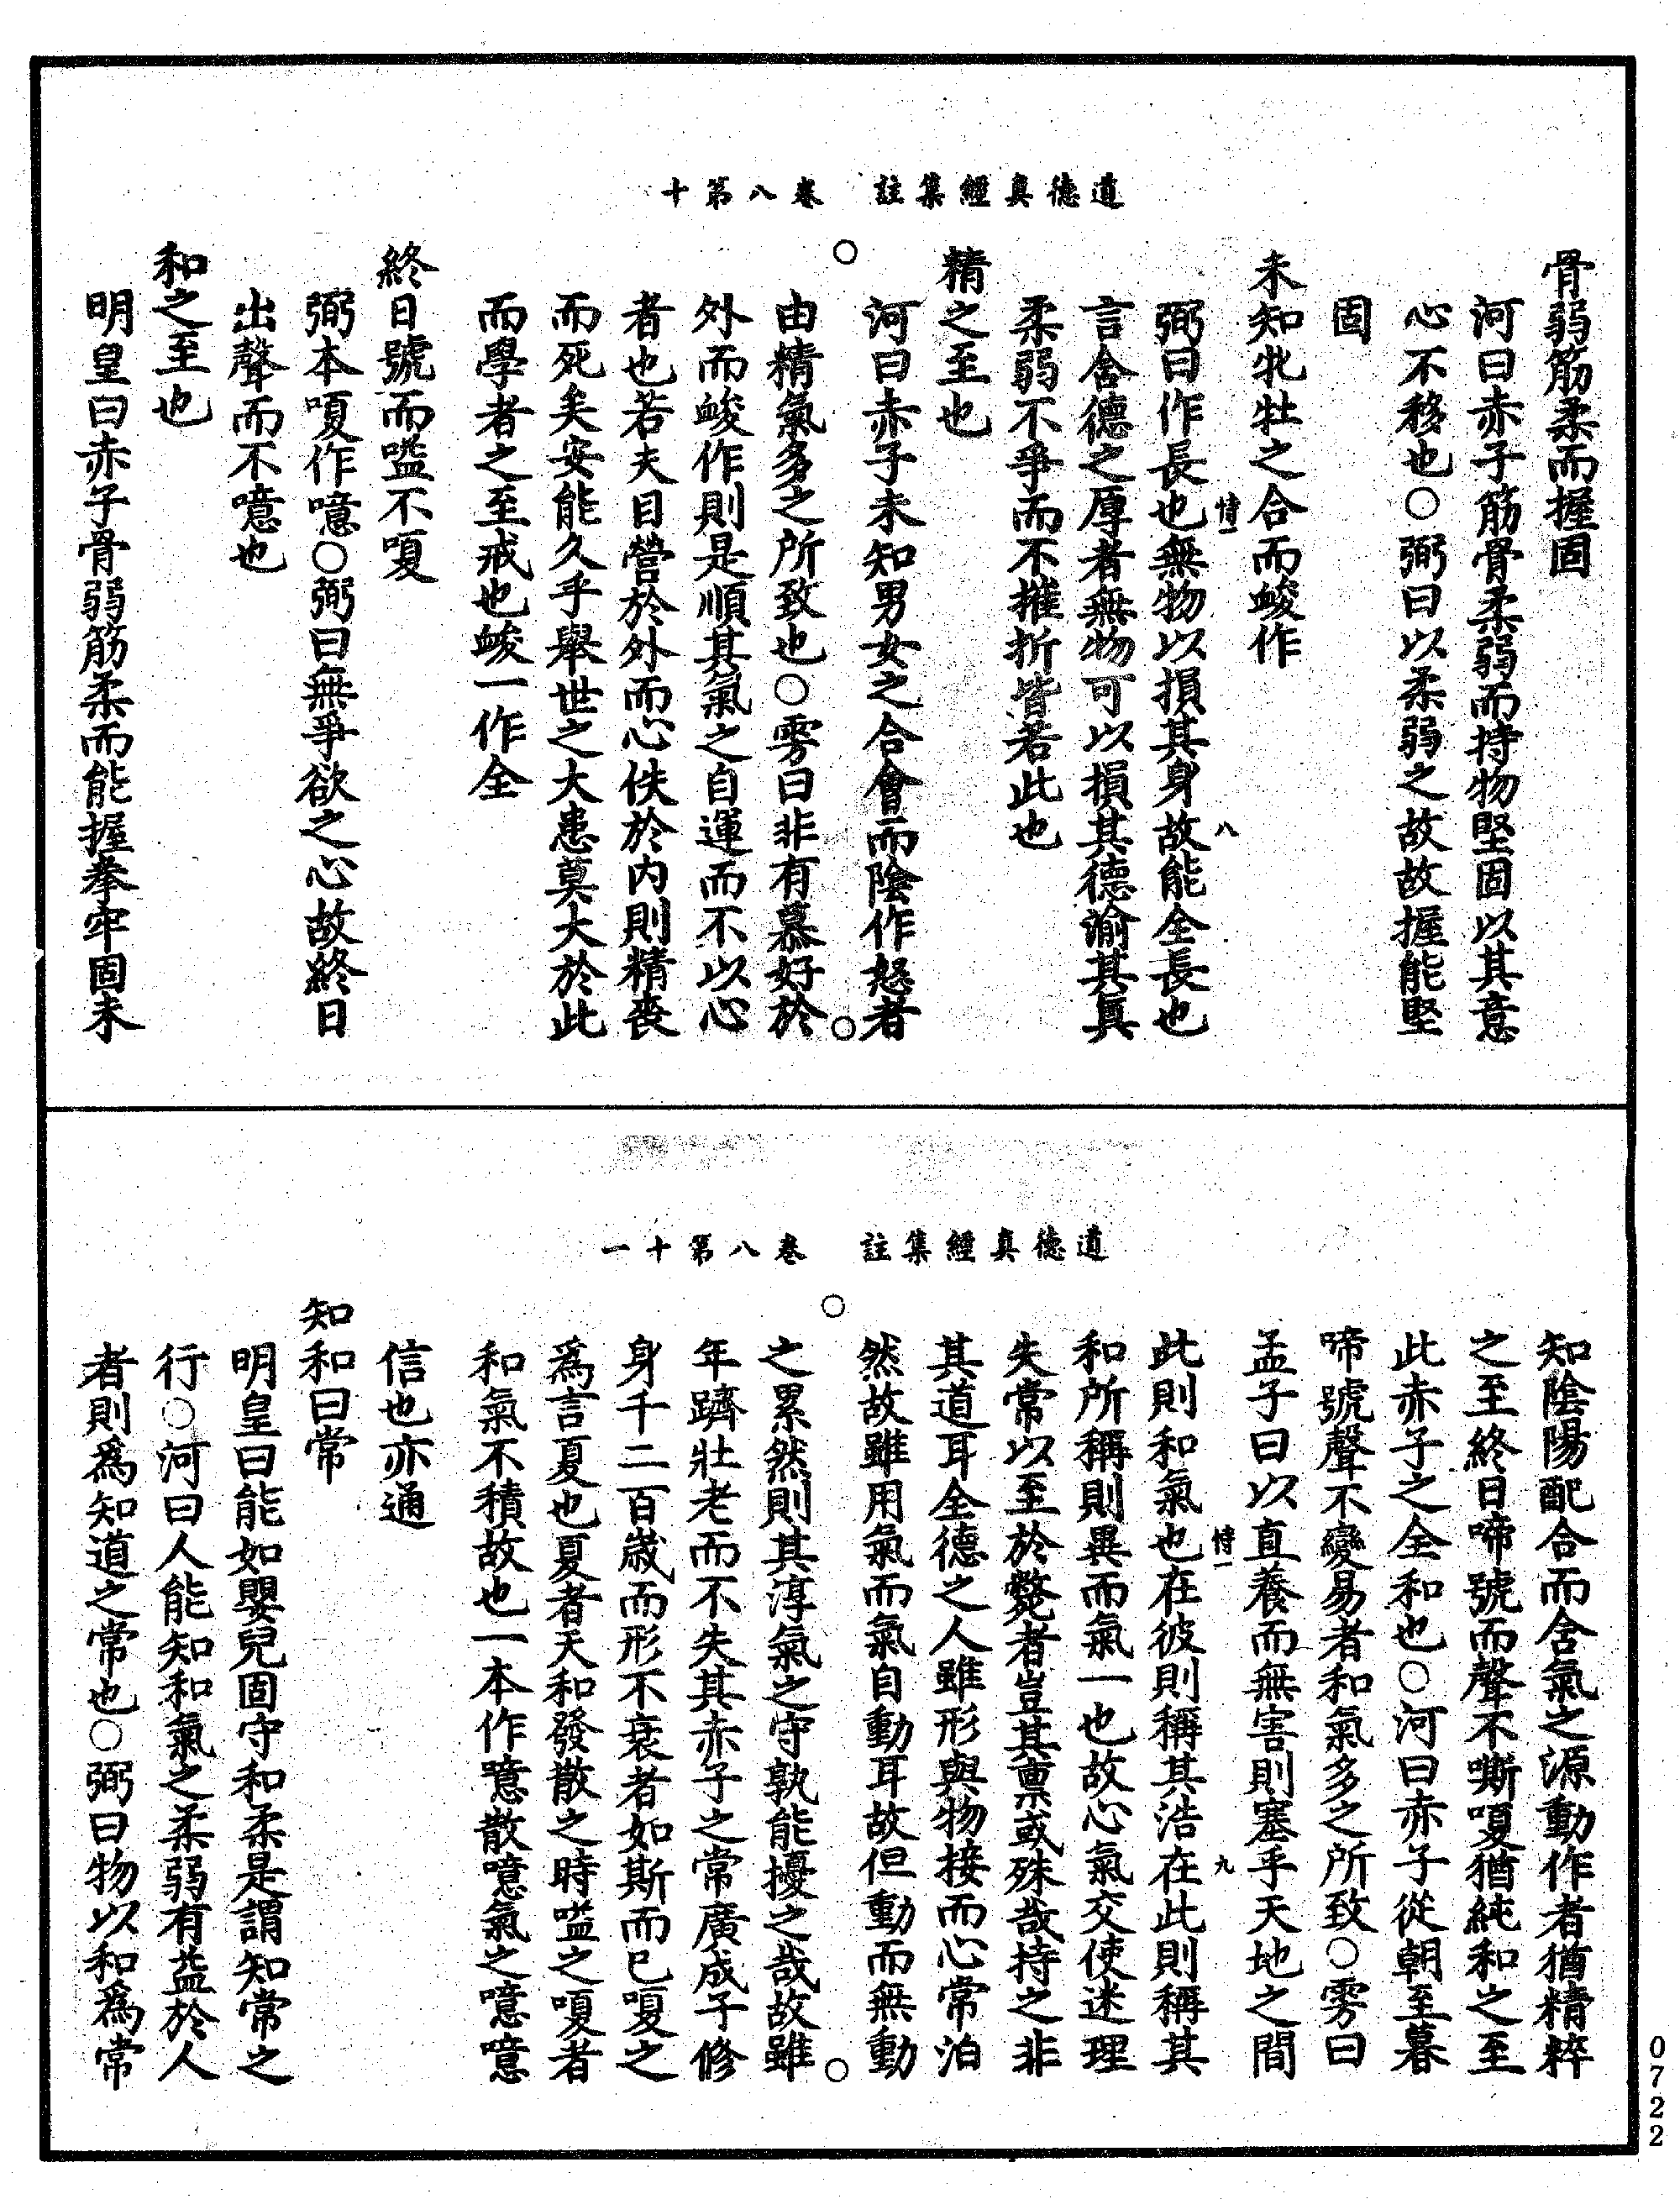 道德真經集註　卷八第十
骨弱筋柔而握固
河曰赤子筋骨柔弱而持物堅固以其意
心不移也○弼曰以柔弱之故故握能堅
固
未知牝牡之合而䘒作
弼曰作長也無物以損其身故能全長也
言含德之厚者無物可以損其德渝其真
柔弱不爭而不摧折皆若此也
精之至也
河曰赤子未知男女之合會而陰作怒者
由精氣多之所致也○雱曰非有慕好於
外而䘒作則是順其氣之自運而不以心
者也若夫目營於外而心佚於内則精喪
而死矣安能久乎舉世之大患莫大於此
而學者之至戒也䘒一作全
終日號而嗌不嗄
弼本嗄作噫○弼曰無爭欲之心故終日
出聲而不噫也
和之至也
明皇曰赤子骨弱筋柔而能握拳牢固未
八
道德真經集註　卷八第十一
知陰陽配合而含氣之源動作者猶精粹
之至終日啼號而聲不嘶嗄猶純和之至
此赤子之全和也○河曰赤子從朝至暮
啼號聲不變易者和氣多之所致○雱曰
孟子曰以直養而無害則塞乎天地之間
此則和氣也在彼則稱其浩在此則稱其
和所稱則異而氣一也故心氣交使迷理
失常以至於斃者豈其稟或殊哉持之非
其道耳全德之人雖形與物接而心常泊
然故雖用氣而氣自動耳故但動而無動
之累然則其淳氣之守孰能擾之哉故雖
年躋壯老而不失其赤子之常廣成子修
身千二百歲而形不衰者如斯而已嗄之
爲言夏也夏者天和發散之時嗌之嗄者
和氣不積故也一本作噫散噫氣之噫噫
信也亦通
知和曰常
明皇曰能如嬰兒固守和柔是謂知常之
行○河曰人能知和氣之柔弱有益於人
者則爲知道之常也○弼曰物以和爲常
九
0722